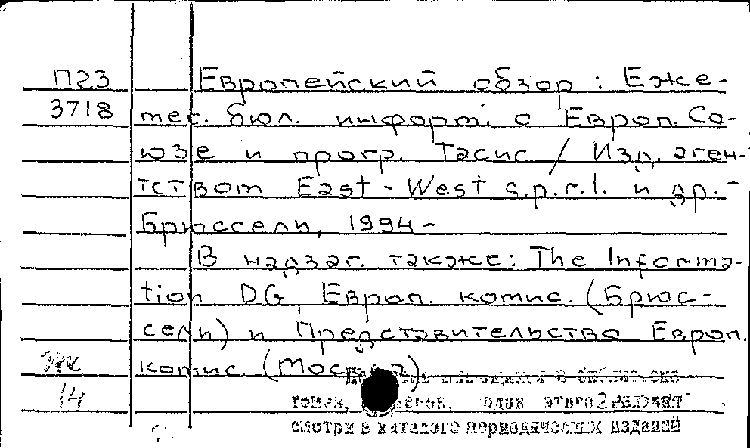 П23 Европейский обзор : Еже-
3718 мес. бюл. информ. о Европ. Со-
юзе и прогр. Тасис / Изд. аген-
тством East-West s.p.r.l. и др. -
Брюссели, 1994 -
В надзаг. также: The Informa-
tion DG, Европ. комис. (Брюс-
сели) и Представительство Европ.
комис. (Москва)
14
смотри в каталоге периодических изданий